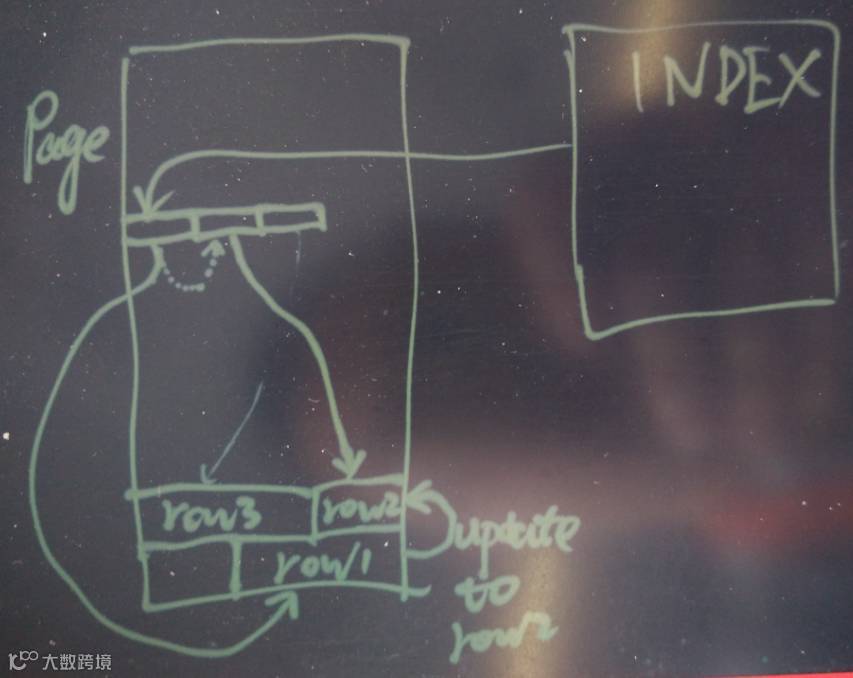 INDEX
Page
row3
row2
row1
update
to
row2
大数跨境